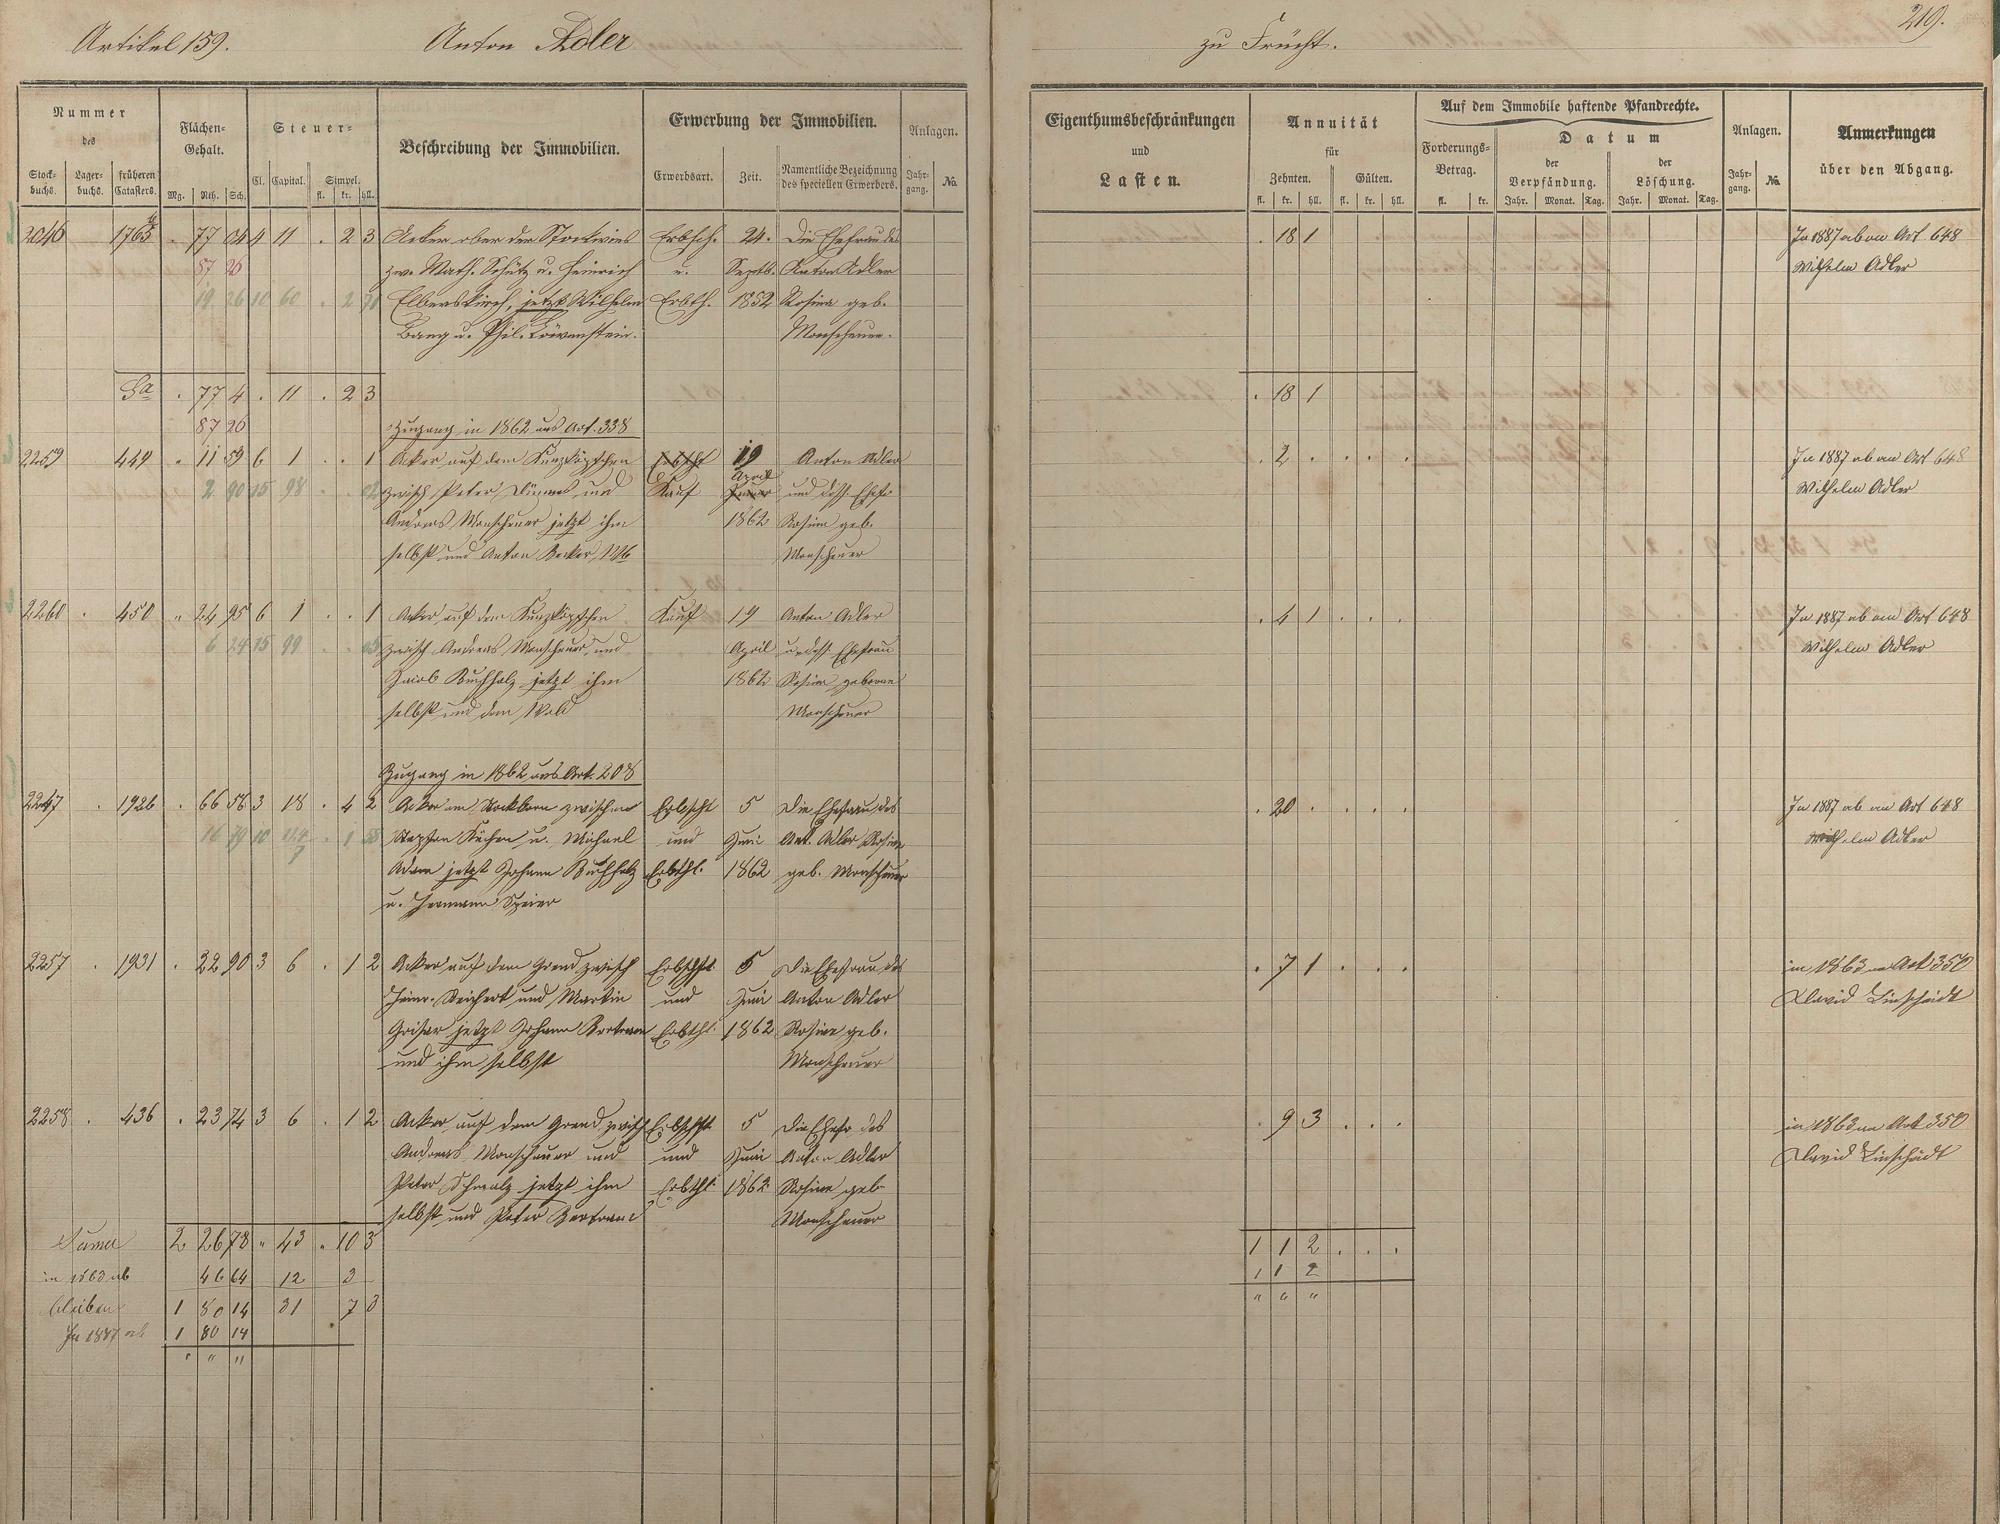 Artikel 159. Anton Adler zu Frücht. 219.
Nummer des
Stock-buchs. Lager-buchs. früheren Catasters.
Flächen-Gehalt.
Mg. Rth. Sch.
Steuer-
Cl. Capital. Simpel.
fl. kr. hll.
Beschreibung der Immobilien.
Erwerbung der Immobilien.
Erwerbsart. Zeit. Namentliche Bezeichnung des speciellen Erwerbers.
Anlagen.
Jahr-gang. No.
Eigenthumsbeschränkungen
und
Lasten.
Annuität
für
Zehnten. Gülten.
fl. kr. hll. fl. kr. hll.
Auf dem Immobile haftende Pfandrechte.
Forderungs-Betrag.
fl. kr.
Datum
der Verpfändung. der Löschung.
Jahr. Monat. Tag. Jahr. Monat. Tag.
Anlagen.
Jahr-gang. No.
Anmerkungen
über den Abgang.
2046 1765 . 77 04 4 11 . 2 3 Acker ober der Stockwies Erbsch. 24. Die Ehefrau des . 18 1 In 1887 ab an Art 648
87 26 zw. Math. Schütz u. Heinrich u. Septb. Anton Adler Wilhelm Adler
19 26 10 60 . 2 71 Elberskirch, jetzt Wilhelm Erbth. 1852 Rosina geb.
Bang u. Phil. Löwenstein. Monscheuer.
Sa . 77 4 . 11 . 2 3 . 18 1
87 26 Zugang in 1862 aus Art. 338
2259 449 . 11 59 6 1 . . 1 Acker auf dem Kunzköpfchen Erbscht 19 Anton Adler . 2 . . . . In 1887 ab an Art 648
2 90 15 98 . . 02 zwisch Peter und Kauf April und dess. Ehefr Wilhelm Adler
Andreas Monscheuer jetzt ihm 1862 Rosina geb.
selbst und Anton Becker Monscheuer
2260 . 450 " 24 95 6 1 . . 1 Acker auf dem Kunzköpfchen Kauf 19 Anton Adler . 4 1 . . . In 1887 ab an Art 648
6 24 15 99 . . 05 zwisch Andreas Monscheuer und April u. dess. Ehefrau Wilhelm Adler
Jacob Buchholz jetzt ihm 1862 Rosina geborne
selbst und dem Wald Monscheuer
Zugang in 1862 aus Art. 208
2247 . 1926 . 66 56 3 18 . 4 2 Acker am zwischen Erbscht 5 Die Ehefrau des . 20 . . . . In 1887 ab an Art 648
16 79 10 . 1 Stephan u. Michael und Juni Ant. Adler Rosine Wilhelm Adler
Adam jetzt Johann Buchholz Erbthl. 1862 geb. Monscheuer
u. Hermann Speier
2257 . 1931 . 22 90 3 6 . 1 2 Acker auf dem Grend zwisch Erbschft 5 Die Ehefrau des . 7 1 . . . in 1863 an Art 350
Heinr. Reichert und Martin und Juni Anton Adler David Linscheidt
jetzt Johann Bertram Erbthl. 1862 Rosine geb.
und ihm selbst Monscheuer
2258 . 436 . 23 74 3 6 . 1 2 Acker auf dem Grend zwisch Erbschft 5 Die Ehefr des . 9 3 . . . in 1863 an Art 350
Andreas Monscheuer und und Juni Anton Adler David Linscheidt
Peter Schmalz jetzt ihm Erbthl 1862 Rosine geb
selbst und Peter Bertram Monscheuer
Suma 2 26 78 " 43 " 10 3 1 1 2 . . .
in 1863 ab 46 64 12 3 1 1 2
bleiben 1 80 14 31 7 3 " " "
In 1887 ab 1 80 14
" " "